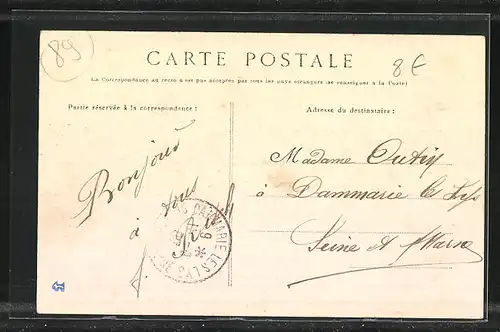 89
8€
CARTE POSTALE
(La Correspondance au recto n'est pas acceptée par tous les pays étrangers (Se renseigner à la Poste)
Partie réservée à la correspondance :
Adresse du destinataire :
Bonjour
à tous
Madame
à Dammarie les Lys
Seine et Marne
DAMMARIE LES LYS